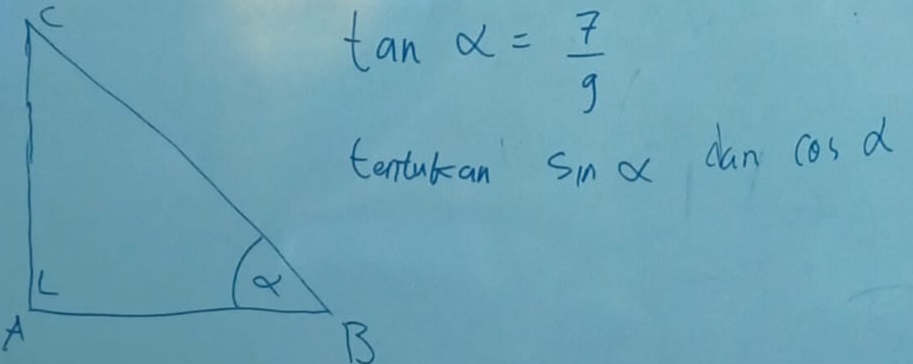 C
tan α = 7/9
tentukan sin α dan cos α
α
A
B